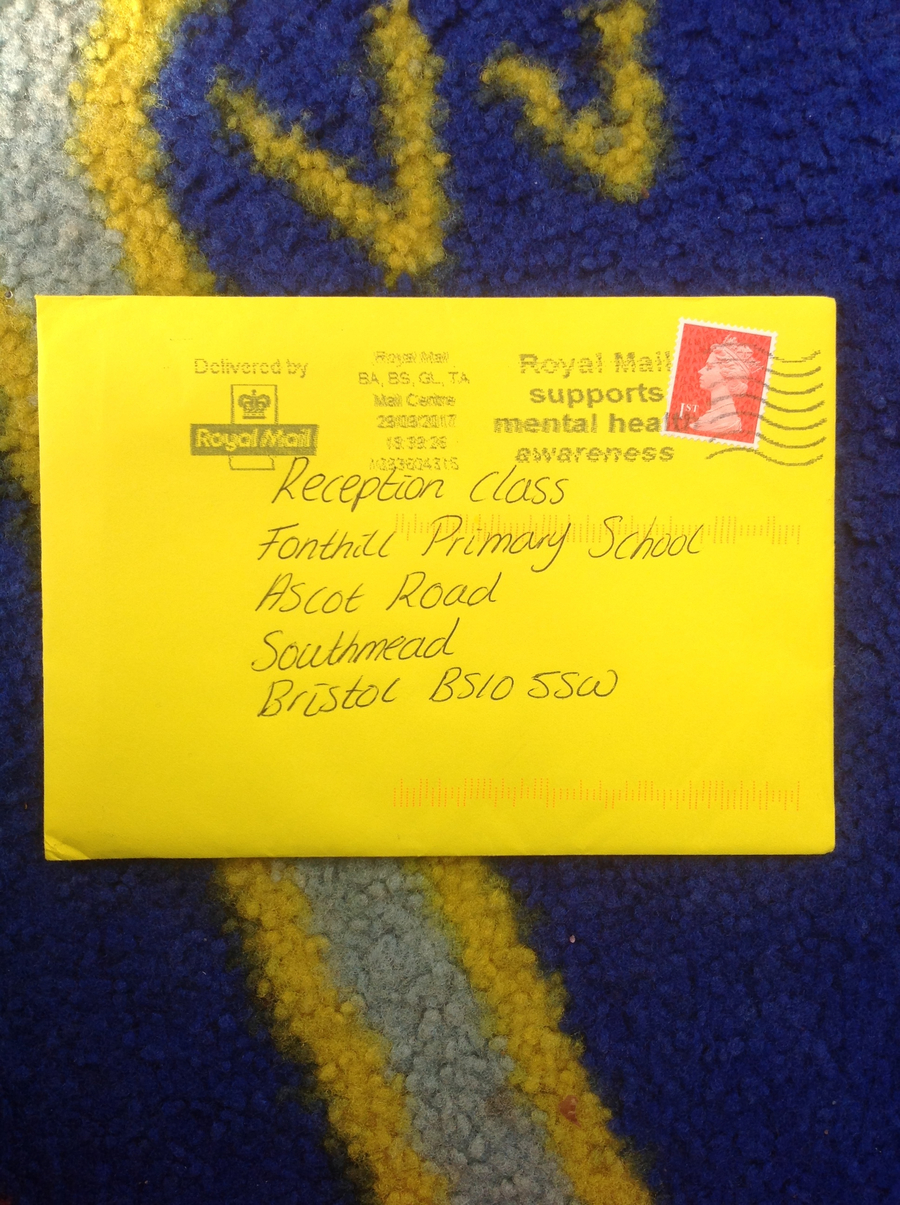 Delivered by
Royal Mail
Royal Mail
BA, BS, GL, TA
Mail Centre
29/09/2017
Royal Mail
supports
mental health
awareness
1ST
Reception class
Fonthill Primary School
Ascot Road
Southmead
Bristol BS10 5SW